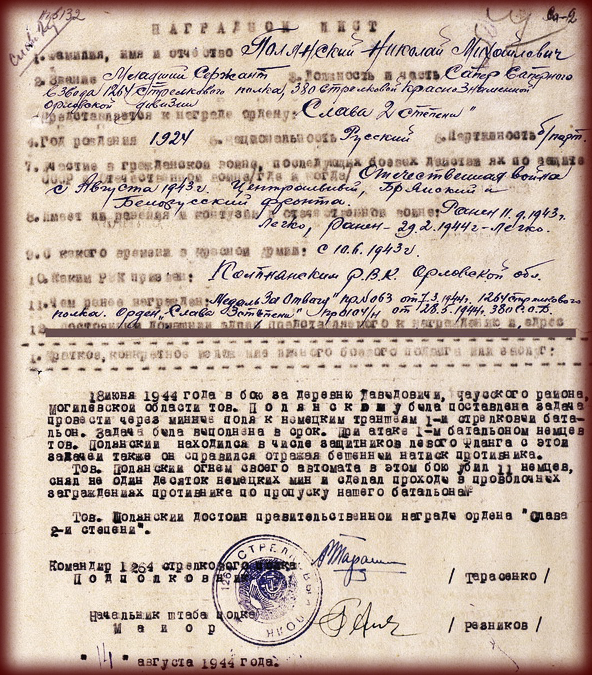 НАГРАДНОЙ ЛИСТ
1. Фамилия, имя и отчество Полянский Николай Михайлович
2. Звание Младший Сержант 3. Должность и часть Сапер Саперного
взвода 1264 стрелкового полка, 380 стрелковой Краснознаменной
Орловской дивизии
представляется к награде ордену: "Слава 2 степени"
4. Год рождения 1924 5. Национальность Русский 6. Партийность б/парт.
7. Участие в гражданской войне, последующих боевых действиях по защите
СССР и Отечественной войне /где и когда/ Отечественная война
с Августа 1943 г. Центральный, Брянский и
Белорусский фронта.
8. Имеет ли ранения и контузии в отечественной войне: Ранен 11.9.1943 г.
Легко, ранен - 29.2.1944 г - Легко.
9. С какого времени в Красной Армии: с 10.6.1943 г.
10. Каким РВК призван: Колпнанским Р.В.К. Орловской обл.
11. Чем ранее награжден: Медаль "За Отвагу" пр № 063 от 7.3.1944 г. 1264 стрелкового
полка. Орден "Слава 3 степени" пр 104/н от 28.5.1944. 380 с.д.
1 . Краткое, конкретное изложение личного боевого подвига или заслуг:
18 июня 1944 года в бою за деревню Давидовичи, Чаусского района,
Могилевской области тов. Полянскому была поставлена задача
провести через минное поля к немецким траншеям 1-й стрелковой бата-
льон. Задача была выполнена в срок. При атаке 1-м батальоном немцев
тов. Полянский находился в числе защитников левого фланга с этой
задачей также он справился отражая бешенный натиск противника.
Тов. Полянский огнем своего автомата в этом бою убил 11 немцев,
снял не один десяток немецких мин и сделал проходе в проволочнех
заграждениях противника по пропуску нашего батальона.
Тов. Полянский достоин правительственной награде ордена "Слава
2-й степени".
Командир 1264 стрелкового полка
Подполковник / Тарасенко /
Начальник штаба полка
Майор / Резников /
"14" августа 1944 года.